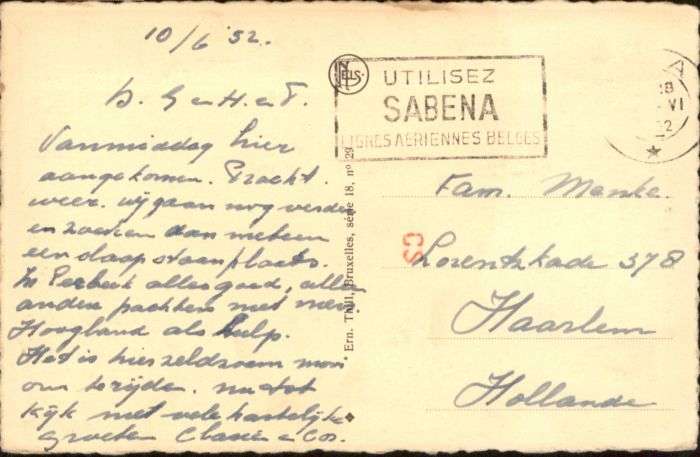 10/6 '52.
Vanmiddag hier
aangekomen. Pracht.
weer. wij gaan nog verder
en zoeken dan meteen
een slaap staanplaats.
In alles goed, allen
andere pachters met
Hoogland als hulp.
Het is hier zeldzaam mooi
om te rijden. nu tot
kijk met vele hartelijke
groeten en Cor.
NELS
UTILISEZ
SABENA
LIGNES AERIENNES BELGES
A
18
VI
52
Ern. Thill, Bruxelles, série 18, no 29
CS
Fam. Menke.
Lorentzkade 378
Haarlem
Hollande